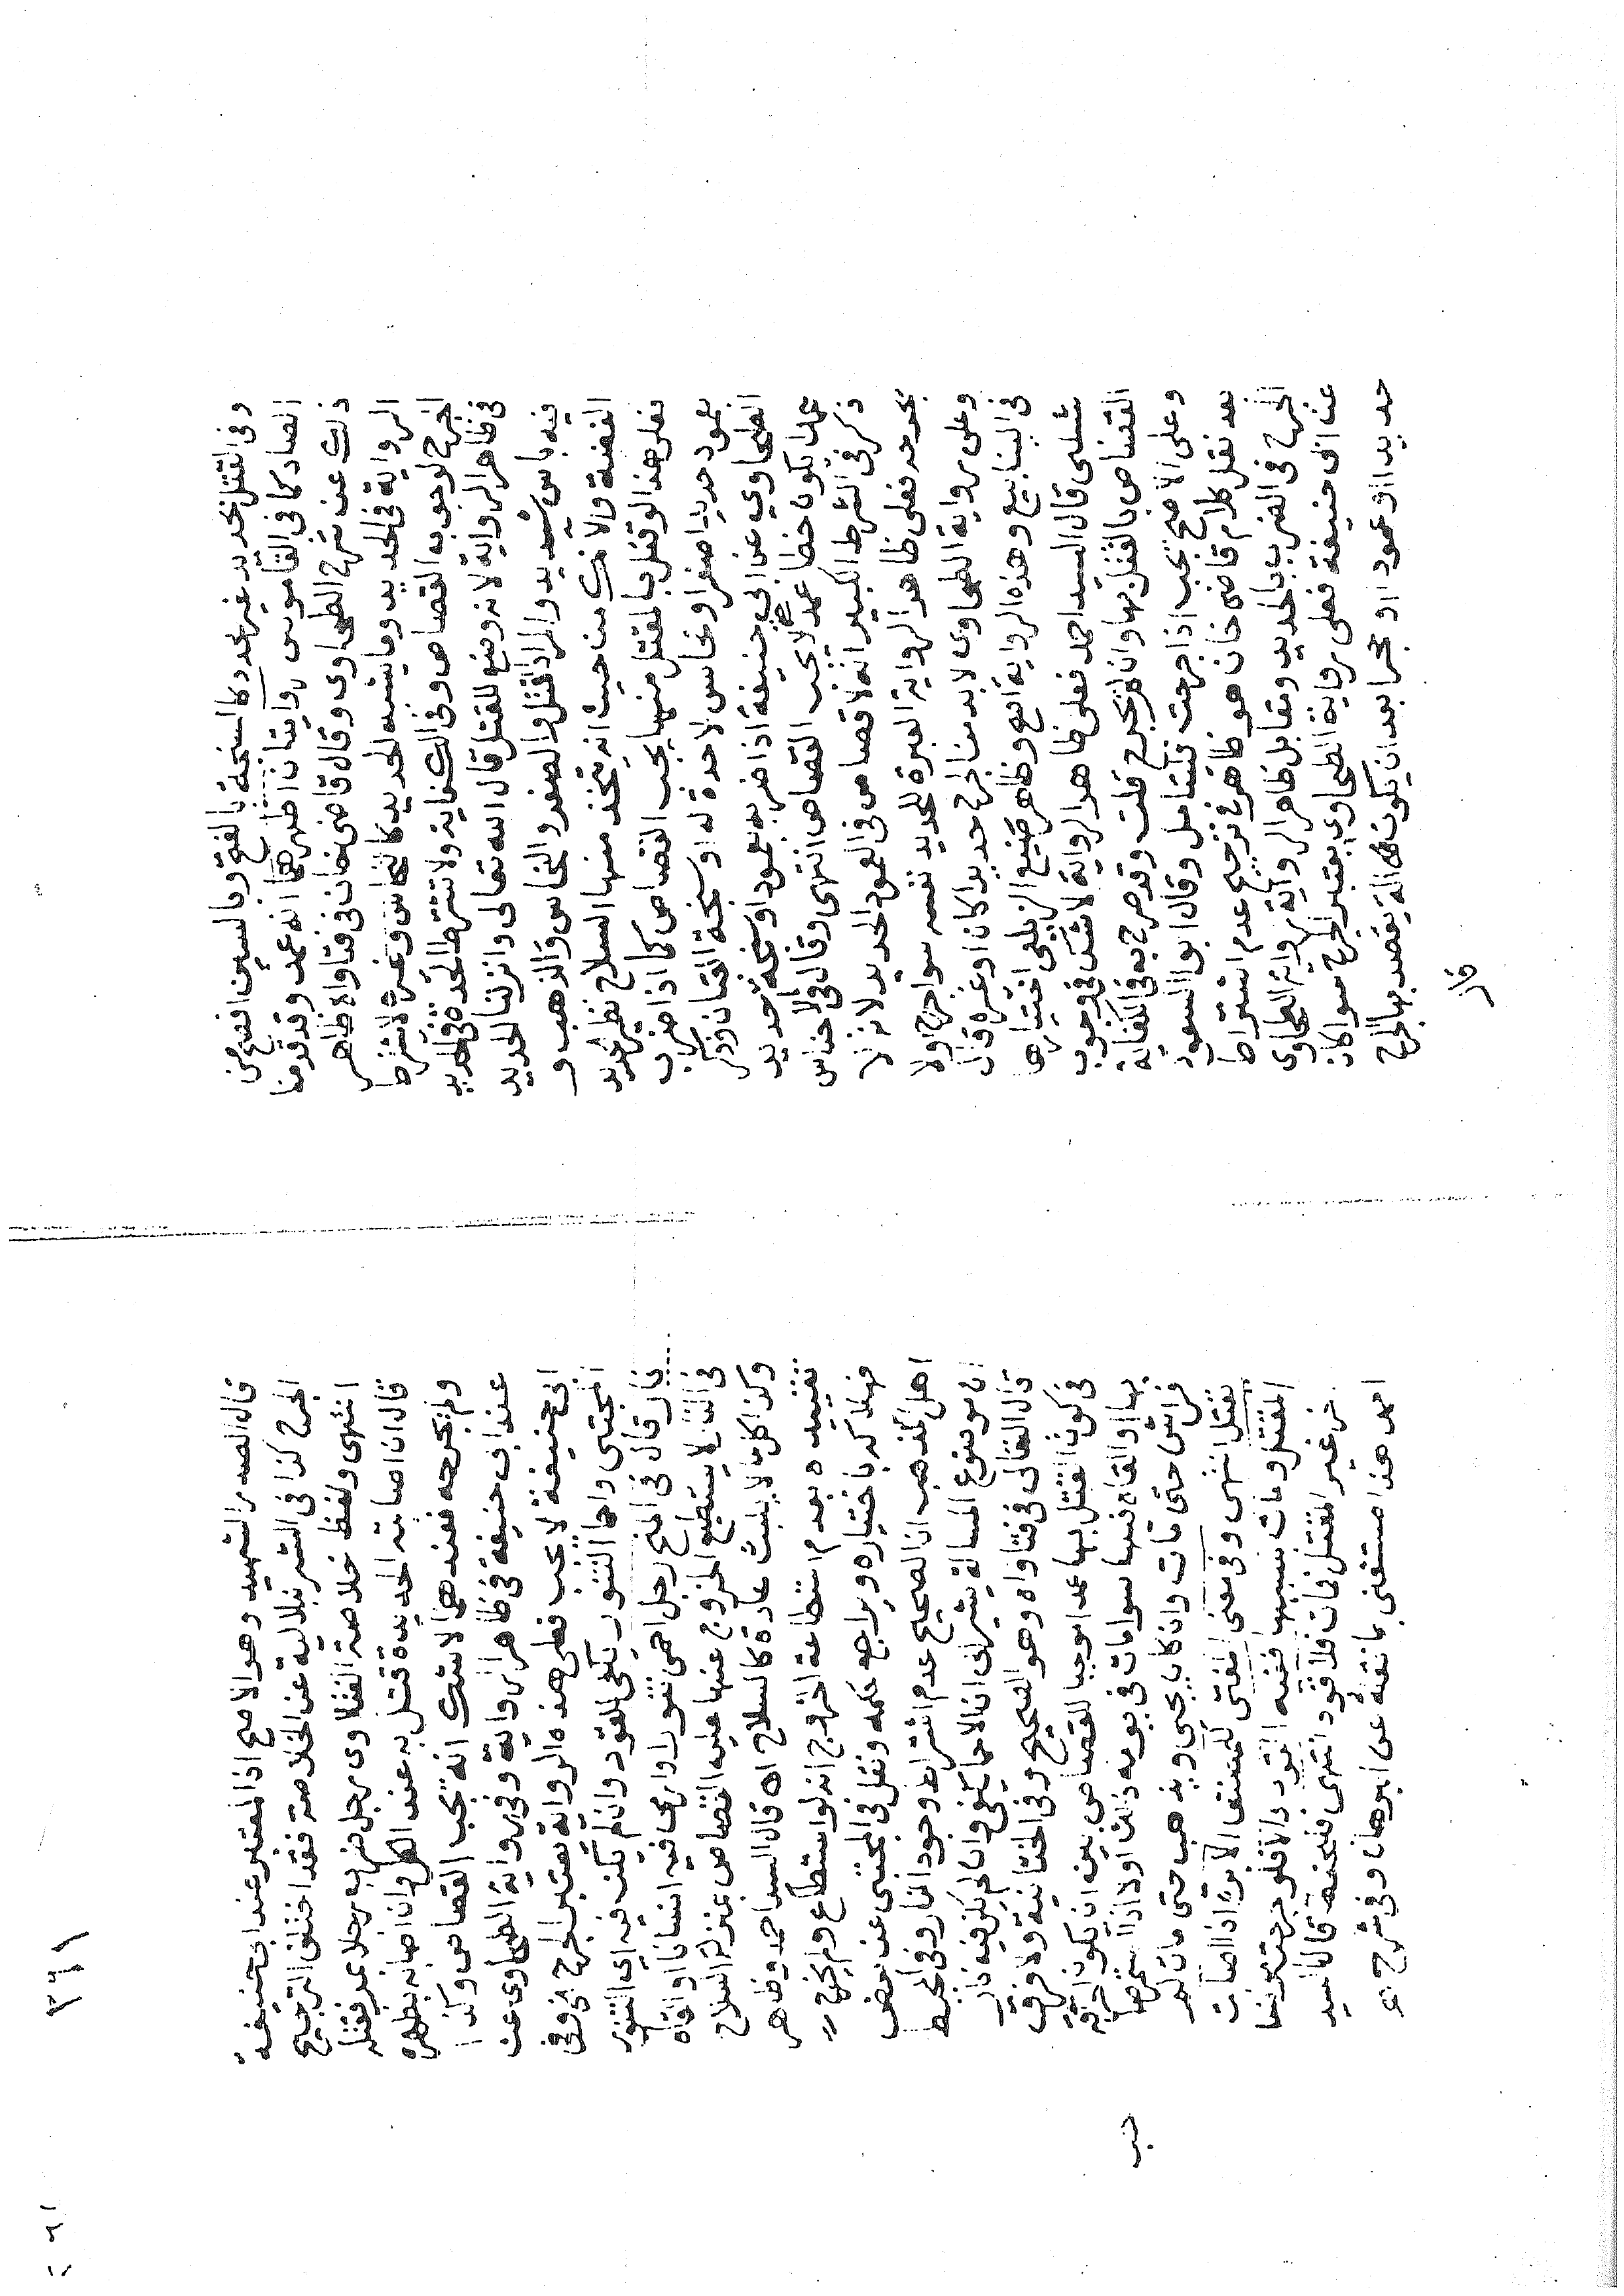 وفى القتل بحديد غير محدد كالسنجة بالفتح وبالسين افصح من
الصاد كما فى القاموس روايتان اظهرهما انه عمد وقد قدمنا
ذلك عن شرح الطحاوى وقال قاضى خان فى فتاواه ظاهر
الرواية فى الحديد وما يشبه الحديد كالنحاس وغيره لا يشترط
الجرح لوجوب القصاص وفى الكفاية ولا تشترط الحدة فى الحديد
فى ظاهر الرواية لانه وضع للقتل قال الله تعالى وانزلنا الحديد
فيه باس شديد والمراد القتل والصفر والنحاس والذهب و
الفضة والانك من حيث انه يتخذ منها السلاح نظير الحديد
فعلى هذا لو قتل بالمقتل منها يجب القصاص كما اذا ضرب
بعمود حديد او صفر او نحاس لا حدة له او سنجة القبان وذكر
الطحاوي عن ابى حنيفة اذا ضربه بعمود او سنجة حديد
عمدا يكون خطا عمد لا يجب القصاص انتهى وقال فى الاجناس
ذكر فى الشرط الكبير انه لا قصاص فى العمود الحديد لانه لا
يجرحه فعلى ظاهر الرواية العبرة للحديد نفسه سوا جرح اولا
وعلى رواية الطحاوى لابد من الجرح حديدا كان او غيره قال
فى الينابيع وهذه الرواية اصح وظاهر صنيع الزيلعى اختيارها
شلبى قال السيد احمد فعلى ظاهر الرواية لا شك فى وجوب
القصاص بالقتل بها وان لم تجرح قلت وقد صرح به فى الكفاية
وعلى الاصح يجب اذا جرحت فليتامل وقال ابو السعود
بعد نقل كلام قاضى خان هو ظاهر فى ترجيح عدم اشتراط
الجرح فى الضرب بالحديد ومقابل ظاهر الرواية رواية الطحاوى
عن ابى حنيفة فعلى رواية الطحاوى يعتبر الجرح سوا كان
حديدا او عمودا او حجرا بعد ان يكون الة يقصد بها الجرح
قال
٣٦١
قال الصدر الشهيد وهو الاصح اذ المعتبر عند ابى حنيفة
الجرح كذا فى الشرنبلالية عن الخلاصة فقد اختلف الترجيح
انتهى ولفظ خلاصة الفتاوى رجل ضرب رجلا بمر فقتله
قال ان اصابته الحديدة قتل به عند الكل وان اصابه بظهره
ولم يجرحه فعندهما لا شك انه يجب القصاص وكذا
عند ابى حنيفة فى ظاهر الرواية وفى رواية الطحاوى عن
ابى حنيفة لا يجب فعلى هذه الرواية يعتبر الجرح اﻫ وفى
المجتبى واحما التنور يكفى للقود وان لم يكن فيه اى التنور
نار قال فى المنح رجل احمى تنورا ورمى فيه انسانا او القاه
فى النار لا يستطيع الخروج عنها عليه القصاص بمنزلة السلاح
وكذا كل ما لا يلبث عادة كالسلاح اه قال السيد احمد وظاهر
تقييده بعدم استطاعة الخروج انه لو استطاع ولم يخرج
فهلك كذا باختياره ويراجع حكمه ونقل فى المجتبى عن بعض
اهل المذهب ان الصحيح عدم اشتراط وجود النار وفى المحيط
ان موضوع المسالة يشير الى ان الاحما يكفى وان لم يكن فيه نار
قال البقالى فى فتاواه وهو الصحيح وفى الخانية ولا فرق
فى كون القتل بها عمدا موجبا للقصاص بين ان يكون احرقه
بها او القاه فيها سوا مات فى يومه ذلك اولا اذا استمر صاحب
فراش حتى مات وان كان يجى ويذهب حتى مات لم
يقتل انتهى وفى معين المفتى للمصنف الابرة اذا اصابت
المقتل ومات بسببها ففيه القود والا فلو جرحت عضوا
من غير المقتل فمات فلا قود انتهى فتحفظ قال السيد
احمد هذا مستغنى بما نقله عن البرهان وفى شرح